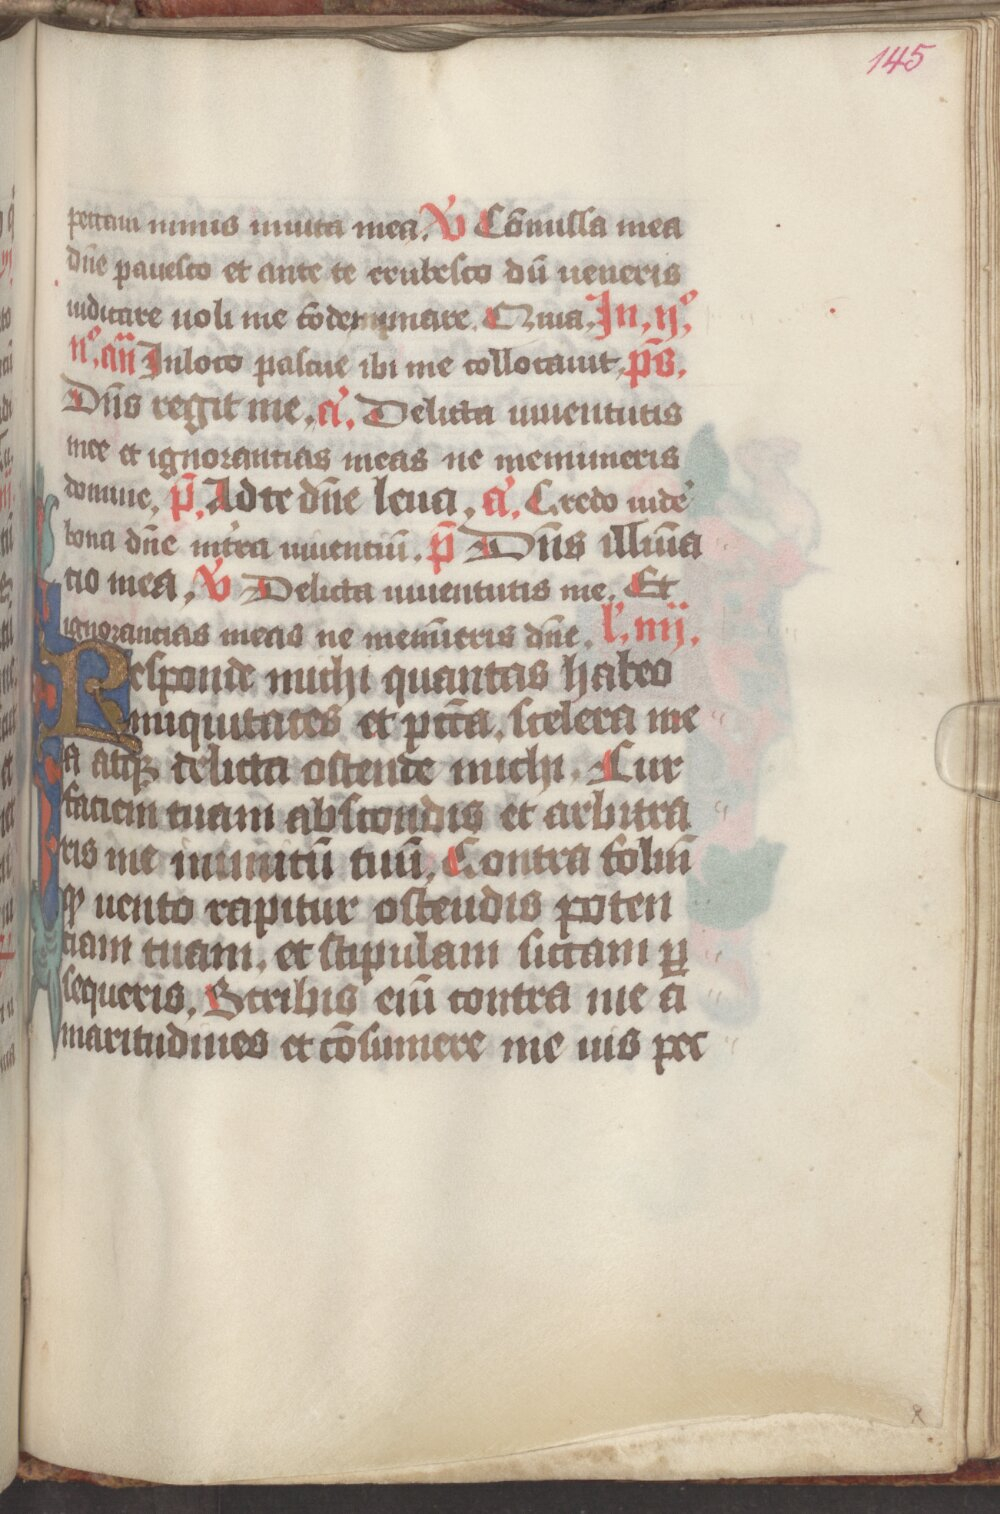 145
peccaui nimis in uita mea. V Cōmissa mea
dñe pauesco et ante te erubesco dū ueneris
iudicare noli me cōdempnare. Quia. In. ij°.
n°. añ In loco pascue ibi me collocauit. ps̄.
Dñs regit me. a'. Delicta iuuentutis
mee et ignorantias meas ne memineris
domine. p̄. Ad te dñe leuaui. a'. Credo uide
bona dñe in t'ra uiuentiū. p̄ Dñs illūīa
tio mea. V Delicta iuuentutis me. Et
ignorantias meas ne memīeris dñe. l'. iiij.
Responde michi quantas habeo
iniquitates et pccā. scelera me
a atq; delicta ostende michi. Cur
faciem tuam abscondis et arbitra
ris me inimicū tuū. Contra foliū
q' uento rapitur ostendis poten
ciam tuam. et stipulam siccam p
sequeris. Scribis eīī contra me a
maritudines et cōsumere me uis pec